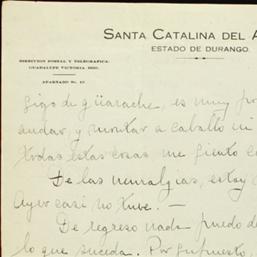 SANTA CATALINA DEL A
ESTADO DE DURANGO.
DIRECCION POSTAL Y TELEGRAFICA:
GUADALUPE VICTORIA, DGO.
APARTADO No. 12
sigo de güarache, es muy pro
andar, y montar a caballo ni
todas estas cosas me siento c
De las neuralgias, estoy
Ayer casi no tuve. —
De regreso nada puedo de
lo que suceda. Por supuesto,